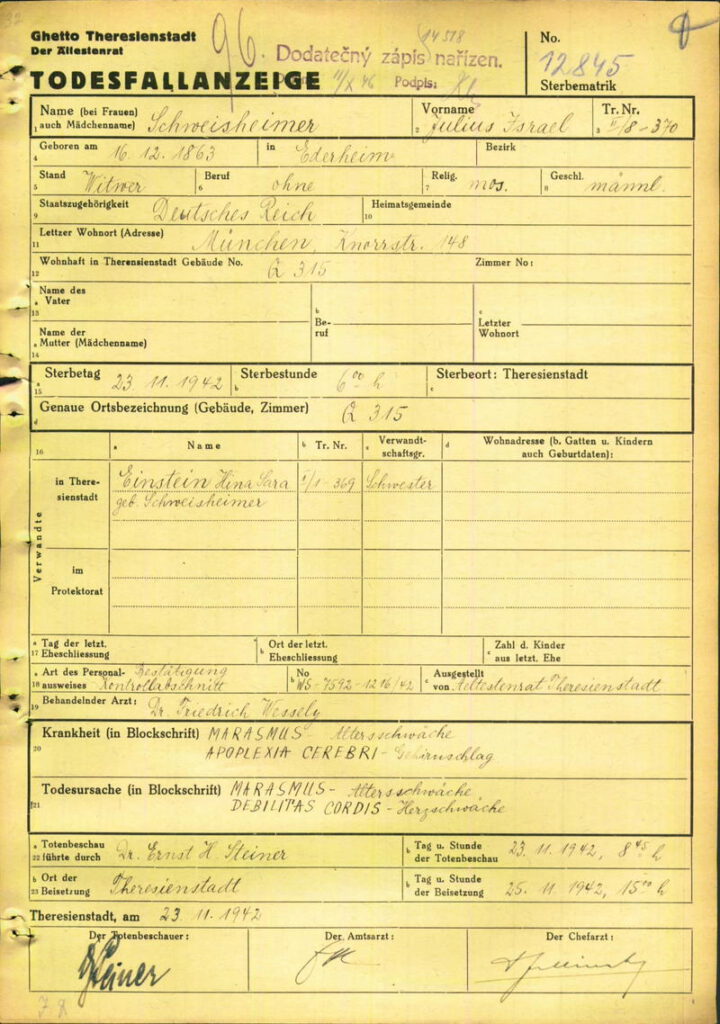 Ghetto Theresienstadt
Der Ällestenrat
TODESFALLANZEIGE
96.
14 518
Dodatečný zápis nařízen.
Podpis:
No.
12845
Sterbematrik
1 Name (bei Frauen) auch Mädchenname) Schweisheimer 2 Vorname Julius Israel 3 Tr. Nr. II/8-370
4 Geboren am 16. 12. 1863 in Ederheim Bezirk
5 Stand Witwer 6 Beruf ohne 7 Relig. mos. 8 Geschl. männl.
9 Staatszugehörigkeit Deutsches Reich 10 Heimatsgemeinde
11 Lettzer Wohnort (Adresse) München, Knorrstr. 148
12 Wohnhaft in Therensienstadt Gebäude No. Q 315 Zimmer No:
13 a Name des Vater b Beruf c Letzter Wohnort
14 Name der Mutter (Mädchenname)
15 a Sterbetag 23 11. 1942 b Sterbestunde 6 00 h c Sterbeort: Theresienstadt
d Genaue Ortsbezeichnung (Gebäude, Zimmer) Q 315
16 a Name b Tr. Nr. c Verwandtschaftsgr. d Wohnadresse (b. Gatten u. Kindern auch Geburtdaten):
Verwandte
in Theresienstadt Einstein Sara 369 Schwester
geb. Schweisheimer
im Protektorat
17 a Tag der letzt. Eheschliessung b Ort der letzt. Eheschliessung c Zahl d. Kinder aus letzt. Ehe
18 a Art des Personalausweises Bestätigung Kontrollabschnitt b No WS-7592-1216/42 c Ausgestellt von Aeltestenrat Theresienstadt
19 Behandelnder Arzt: Dr. Friedrich Wessely
20 Krankheit (in Blockschrift) MARASMUS - Altersschwäche
APOPLEXIA CEREBRI - Gehirnschlag
21 Todesursache (in Blockschrift) MARASMUS - Altersschwäche
DEBILITAS CORDIS - Herzschwäche
22 a Totenbeschau führte durch Dr. Ernst H. Steiner b Tag u. Stunde der Totenbeschau 23. 11. 1942, 8 45 h
23 b Ort der Beisetzung Theresienstadt b Tag u. Stunde der Beisetzung 25. 11. 1942, 15 00 h
Theresienstadt, am 23. 11. 1942
Der Totenbeschauer: Der Amtsarzt: Der Chefarzt:
Steiner